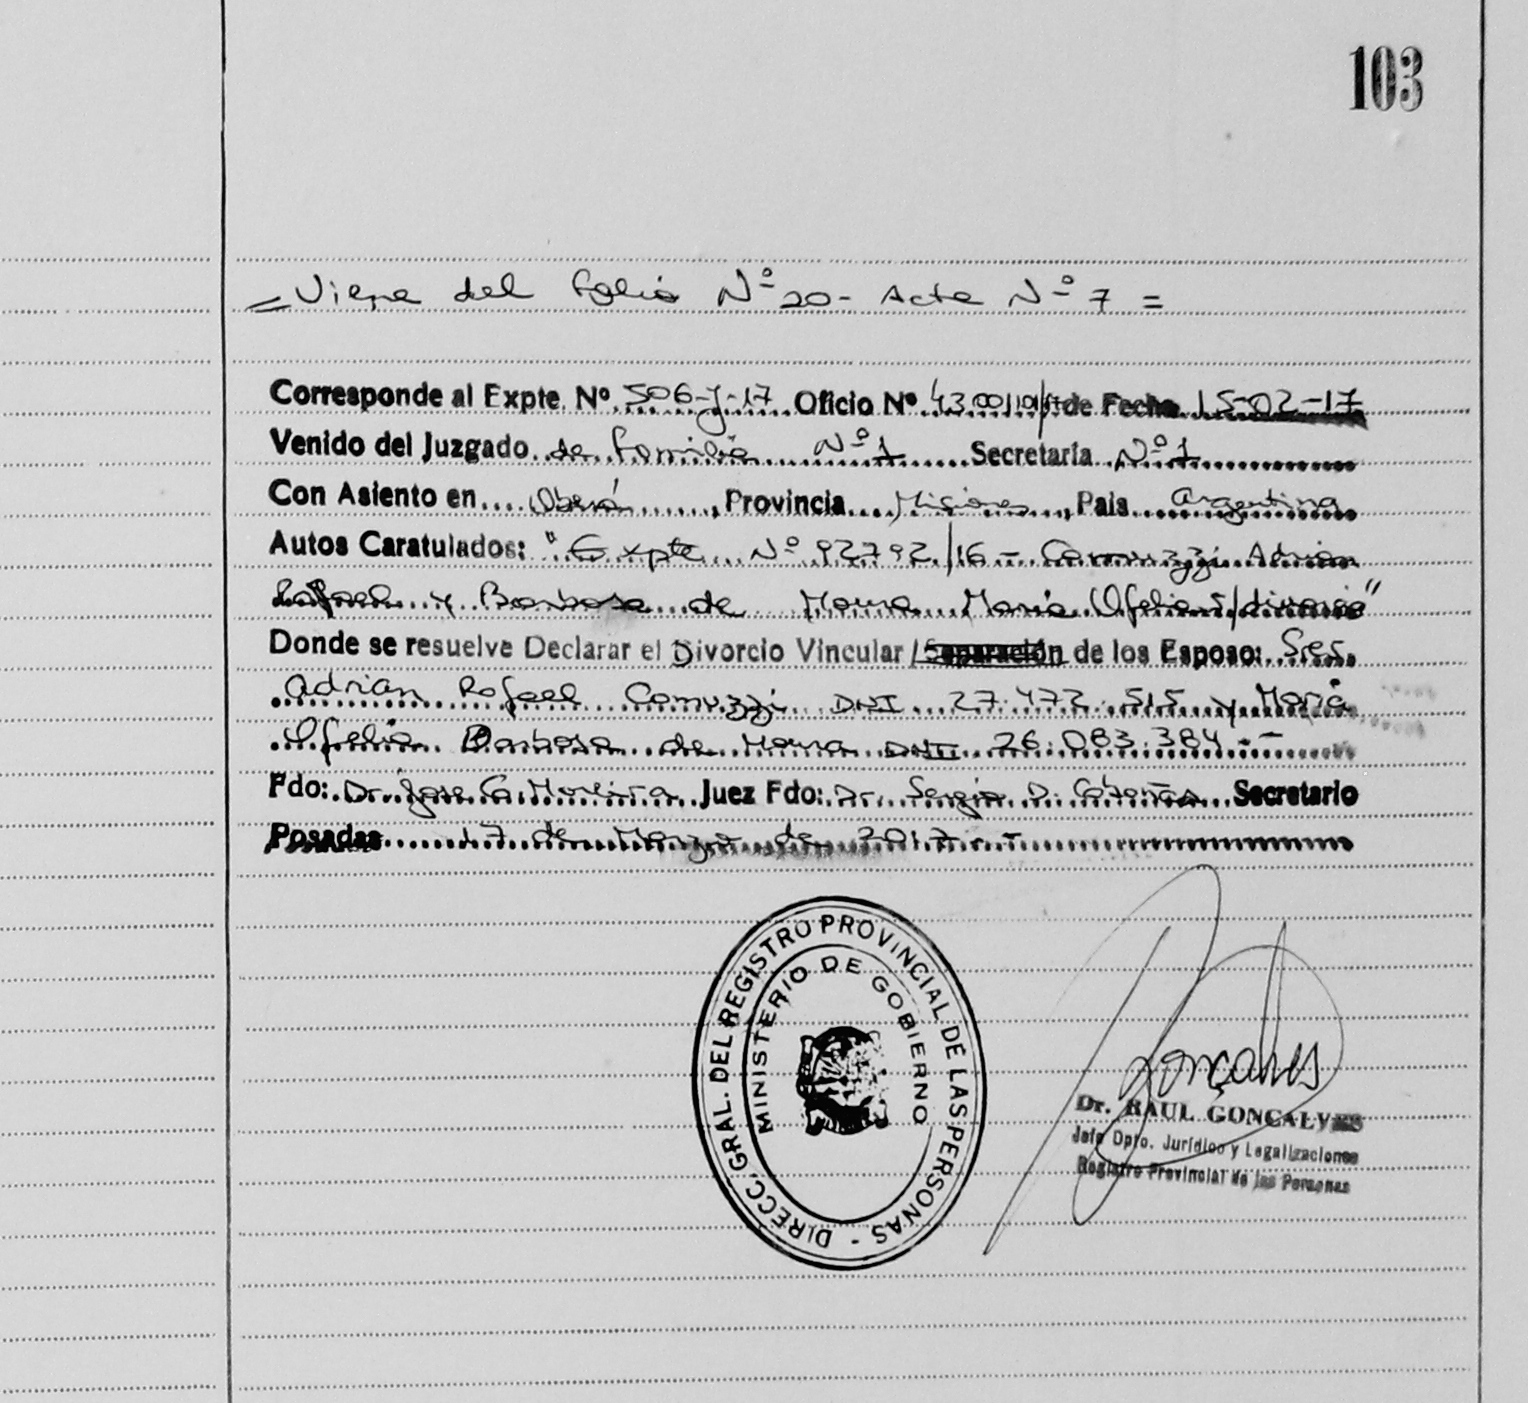 103
= Viene del folio Nº 20 - Acta Nº 7 =
Corresponde al Expte. Nº 506-J-17 Oficio Nº de Fecha 15-02-17
Venido del Juzgado de Familia Nº 1 Secretaría Nº 1
Con Asiento en Oberá, Provincia Misiones, País Argentina
Autos Caratulados: "Expte Nº 92792/16 - Comuzzi Adrian
Rafael y Barbosa de Moura María Ofelia s/divorcio"
Donde se resuelve Declarar el Divorcio Vincular / Separación de los Esposo: Sres.
Adrian Rafael Comuzzi DNI 27.472.515 y María
Ofelia Barbosa de Moura DNI 26.083.384 - -
Fdo: Dr. Jose G. Moreira Juez Fdo: Dr. Sergio D. Secretario
Posadas 17 de Marzo de 2017 -
DIRECC. GRAL. DEL REGISTRO PROVINCIAL DE LAS PERSONAS -
MINISTERIO DE GOBIERNO
Gonçalves
Dr. RAUL GONCALVES
Jefe Dpto. Jurídico y Legalizaciones
Registro Provincial de las Personas